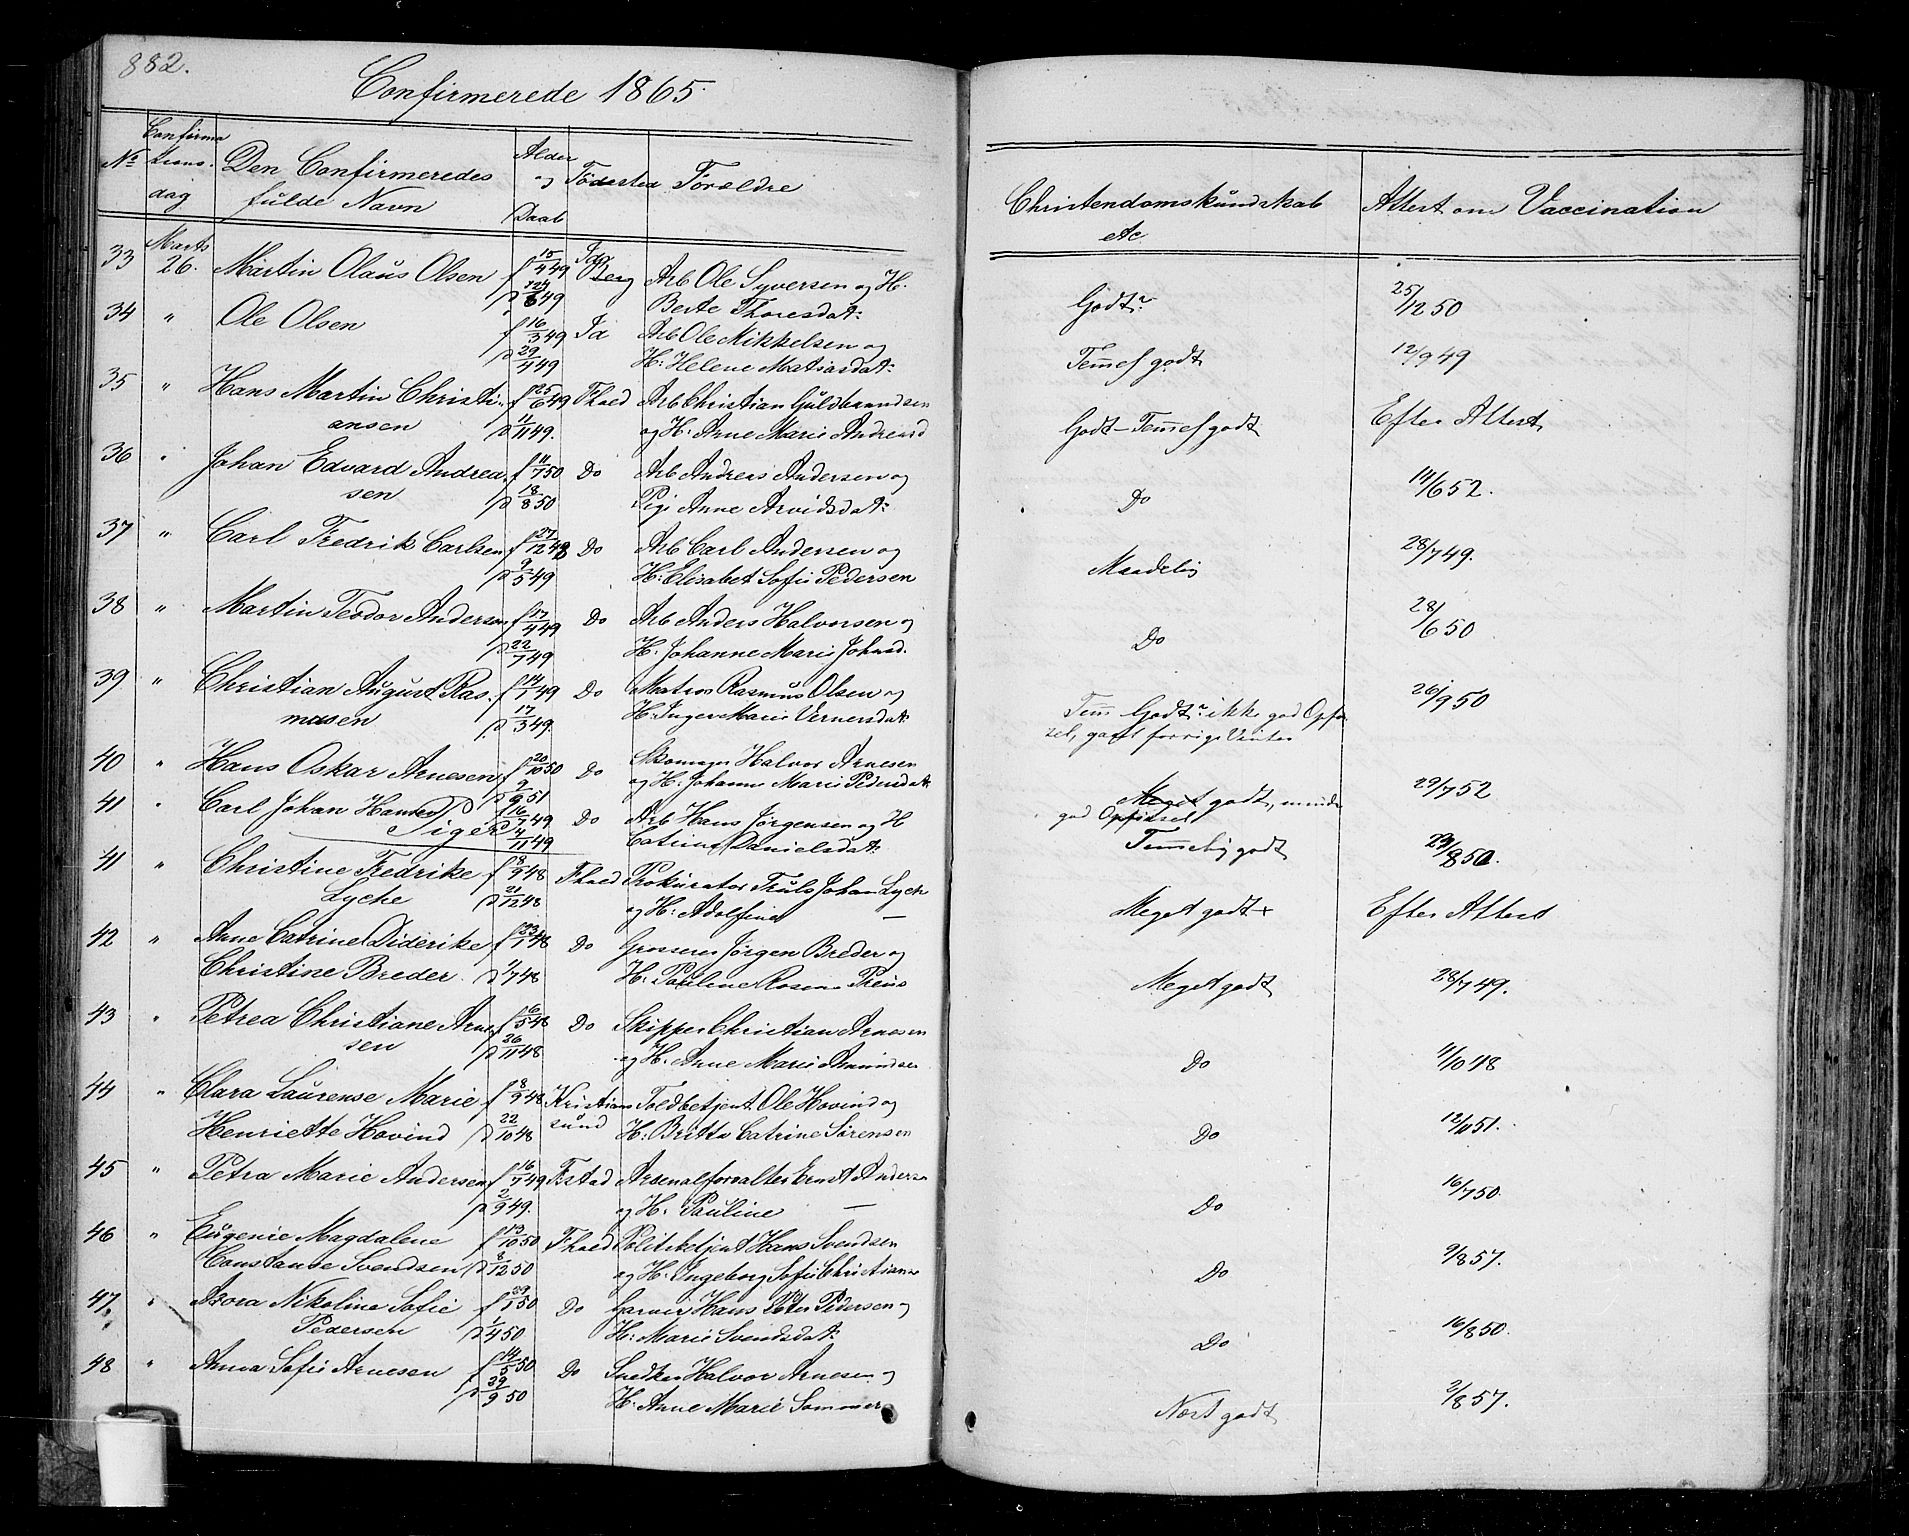 882.
Confirmerede 1865.
No Confirma tions. dag Den Confirmeredes fulde Navn Alder og Daab Födested Forældre Christendomskundskab etc Attest om Vaccination
33 Marts 26. Martin Olaus Olsen f 15/4 49 Berg Arb Ole Syversen og H. Godt 25/12 50
6 49 Berte Thoresdat:
34 " Ole Olsen f 16/3 49 Id Arb Ole Mikkelsen og Temmel godt 12/9 49
d 29/4 49 H: Helene Matiasdat:
35 " Hans Martin Christi- f 25/6 49 Fhald Arb Christian Guldbrandsen Godt - Temmel godt Efter Attest
ansen d 1/11 49. og H: Anne Marie Andreasd
36 " Johan Edvard Andrea f 11/7 50 Do Arb Andreas Andersen og Do 14/6 52.
sen d 18/8 50 Pige Anne Arvidsdat:
37 " Carl Fredrik Carlsen f 27/12 48 Do Arb Carl Andersen og Maadelig 28/7 49.
d 9/5 49 H: Elisabet Sofie Pedersen
38 " Martin Teodor Andersen f 17/4 49 Do Arb Anders Halvorsen og Do 28/6 50
d 22/7 49 H. Johanne Marie Johnsd.
39 " Christian August Ras- f 14/1 49 Do Matros Rasmus Olsen og Tem Godt ikke god Opfør 26/9 50
mussen d 17/3 49. H: Inger Marie Vernersdat: sel, gaaet forrige Vinter
40 " Hans Oskar Arnesen f 20/10 50 Do Skomager Halvor Arnesen Meget godt, mindre 29/7 52
51 og H. Johanne Marie Pedersdat: god Opførsel
41 " Carl Johan Hansen f 16/7 49 Do Arb Hans Jørgensen og H Temmelig godt 23/8 50.
Piger d 4/11 49 Catrine Danielsdat:
41 " Christine Fredrike f 8/9 48 Fhald Prokurator Truls Johan Lyche Meget godt + Efter Attest
Lyche d 21/12 48 og H: Adolfine —
42 " Anne Catrine Diderike f 23/1 48 Do Grosserer Jørgen Breder og Meget godt 28/7 49.
Christine Breder. d 1/7 48 H: Pauline Rosine Preus
43 " Petrea Christiane Arne f 16/5 48 Do Skipper Christian Arnesen Do 4/10 48
sen d 26/11 48 og H. Anne Marie Amundsen
44 " Clara Laurense Marie f 8/9 48 Kristian Toldbetjent Ole Hovind og Do 12/10 51.
Henriette Hovind d 22/10 48 sund H: Britta Catrine Sörensen
45 " Petra Marie Andersen f 16/7 49 Fstad Arsenalforvalter Ernst Andersen Do 16/7 50.
d 2/9 49. og H. Pauline —
46 " Eugenie Magdalene f 13/10 50 Fhald Politibetjent Hans Svendsen Do 9/8 57.
Constanse Svendsen d 8/12 50 og H: Ingeborg Sofie Christians
47. " Asora Nikoline Sofie f 29/1 50 Do Garver Hans Peter Pedersen og Do 16/8 50.
Pedersen d 1/4 50 H: Marie Svendsdat:
48 " Anna Sofie Arnesen f 14/5 50 Do Snedker Halvor Arnesen og Næst godt 2/8 57.
d 29/9 50 H. Anne Marie Sommer